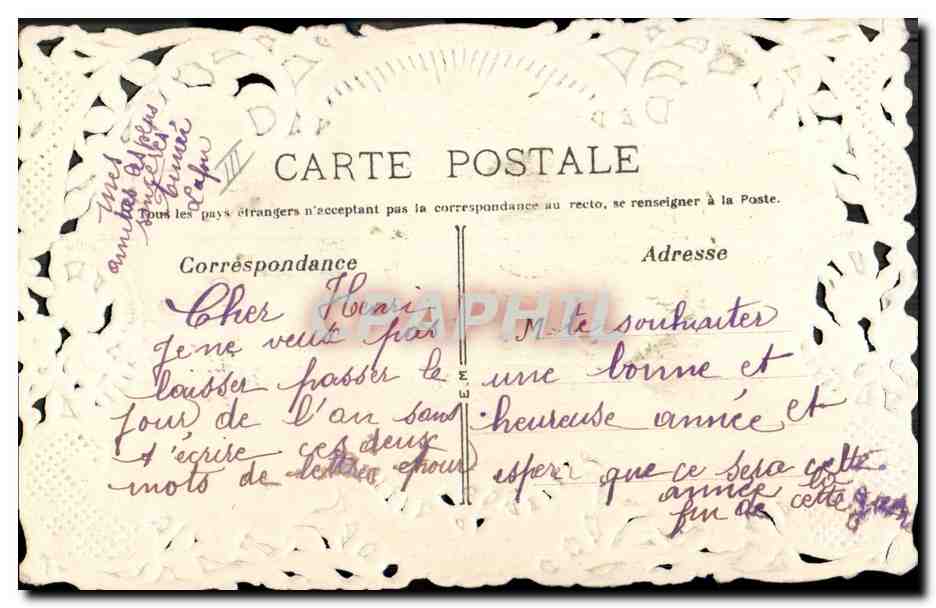 CARTE POSTALE
Tous les pays étrangers n'acceptant pas la correspondance au recto, se renseigner à la Poste.
Correspondance
Cher Henri
Je ne veux pas
laisser passer le
jour de l'an sans
t'écrire ces deux
mots de lettre pour
E M
Adresse
te souhaiter
une bonne et
heureuse année et
esper que ce sera cette
année la
fin de cette
mes
amitiés les plus
sincères